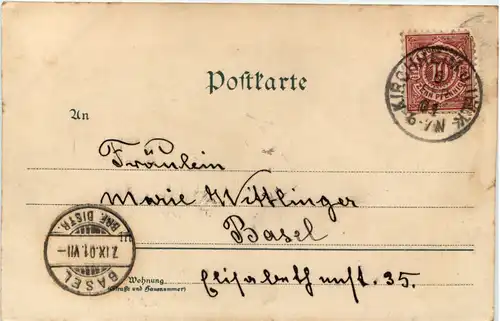 Postkarte
KIRCHH
10
PFENNIG
An
Fräulein
Marie Wittlinger
Basel
BRF. DISTR.
7.IX.01.VII-
BASEL
Wohnung
(Straße und Hausnummer)
35.